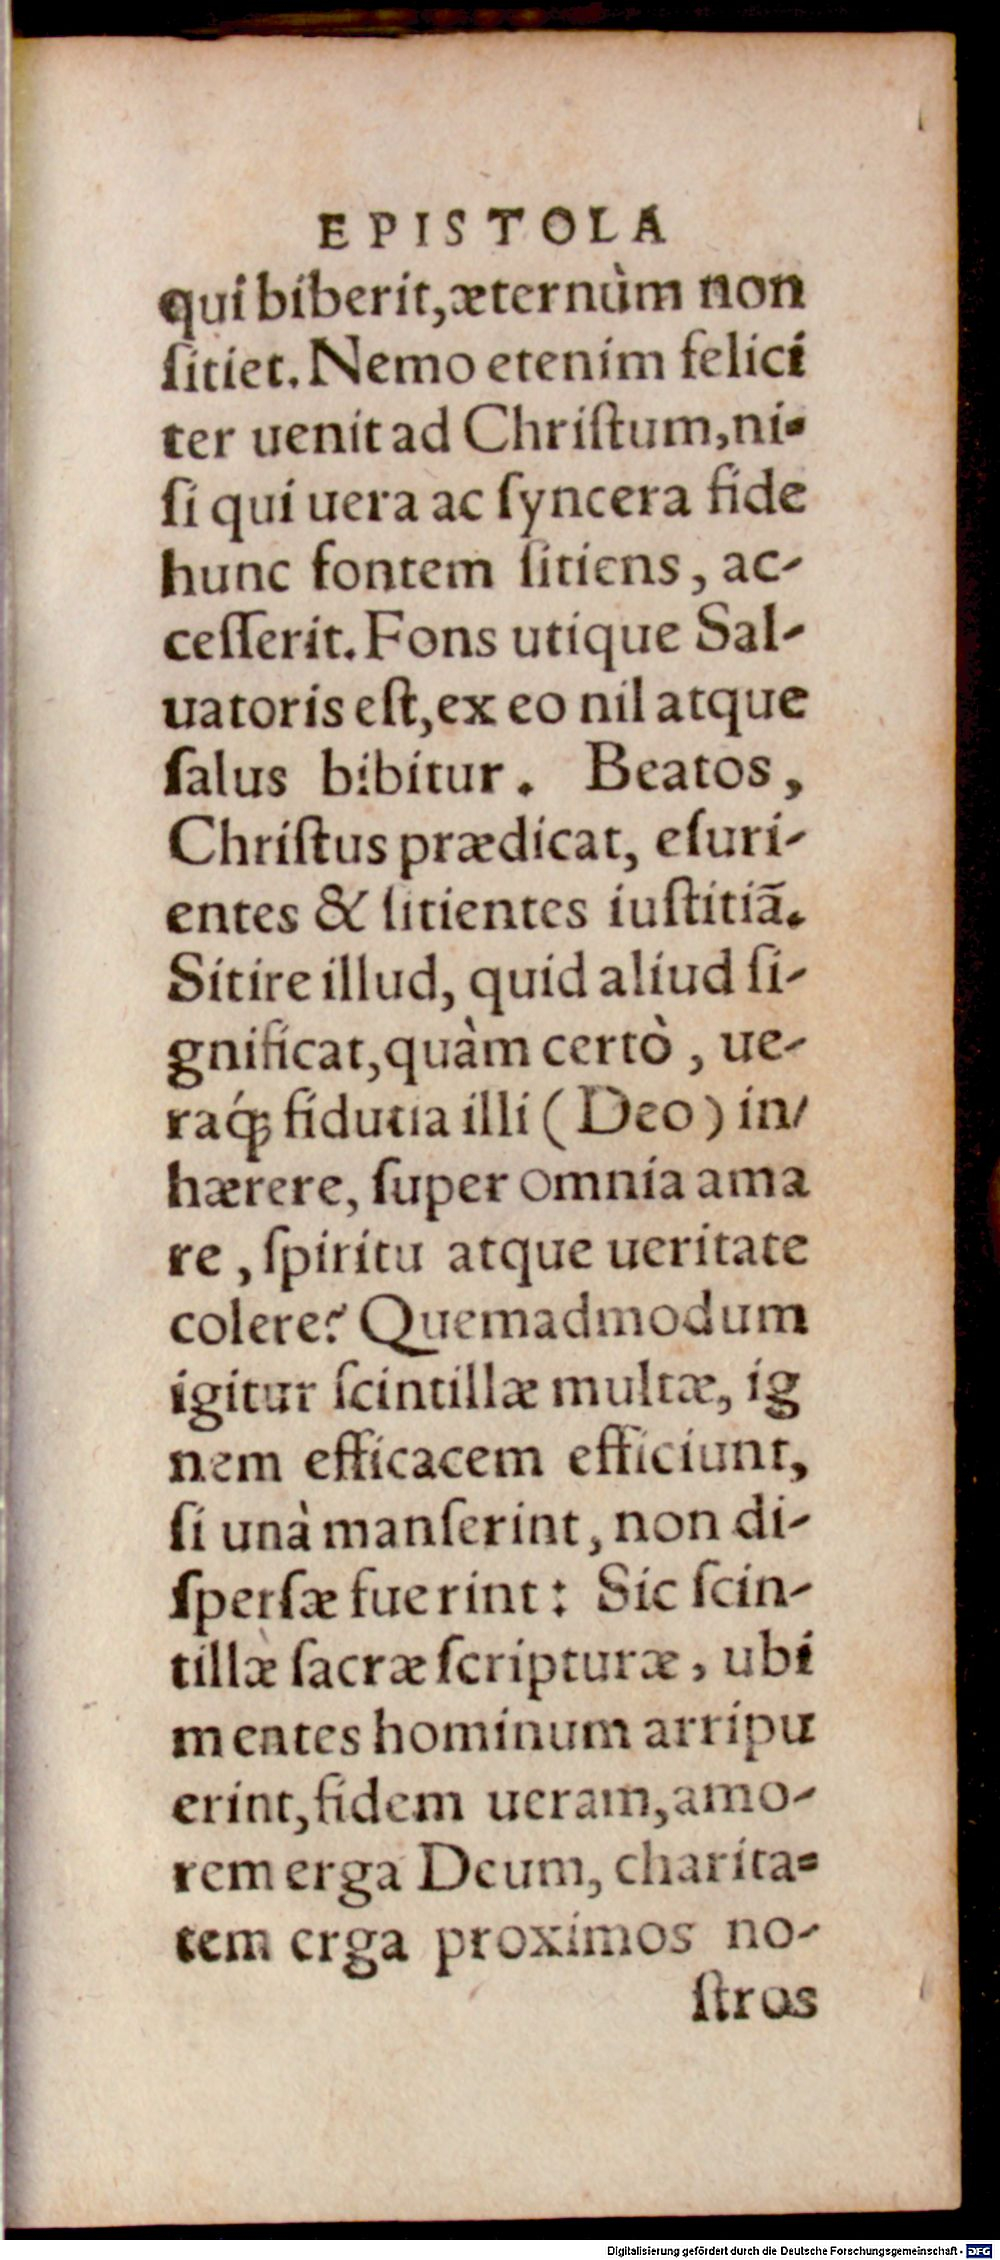 EPISTOLA
qui biberit,æternùm non
ſitiet. Nemo etenim felici
ter uenit ad Chriſtum,ni-
ſi qui uera ac ſyncera fide
hunc fontem ſitiens, ac-
ceſſerit. Fons utique Sal-
uatoris eſt,ex eo nil atque
ſalus bibitur. Beatos,
Chriſtus prædicat, eſuri-
entes & ſitientes iuſtitiã.
Sitire illud, quid aliud ſi-
gnificat,quàm certò, ue-
raq́; fidutia illi (Deo) in/
hærere, ſuper omnia ama
re, ſpiritu atque ueritate
colere? Quemadmodum
igitur ſcintillæ multæ, ig
nem efficacem efficiunt,
ſi unà manſerint, non di-
ſperſæ fuerint: Sic ſcin-
tillæ ſacræ ſcripturæ, ubi
mentes hominum arripu
erint,fidem ueram,amo-
rem erga Deum, charita-
tem erga proximos no-
ſtros
Digitalisierung gefördert durch die Deutsche Forschungsgemeinschaft - DFG